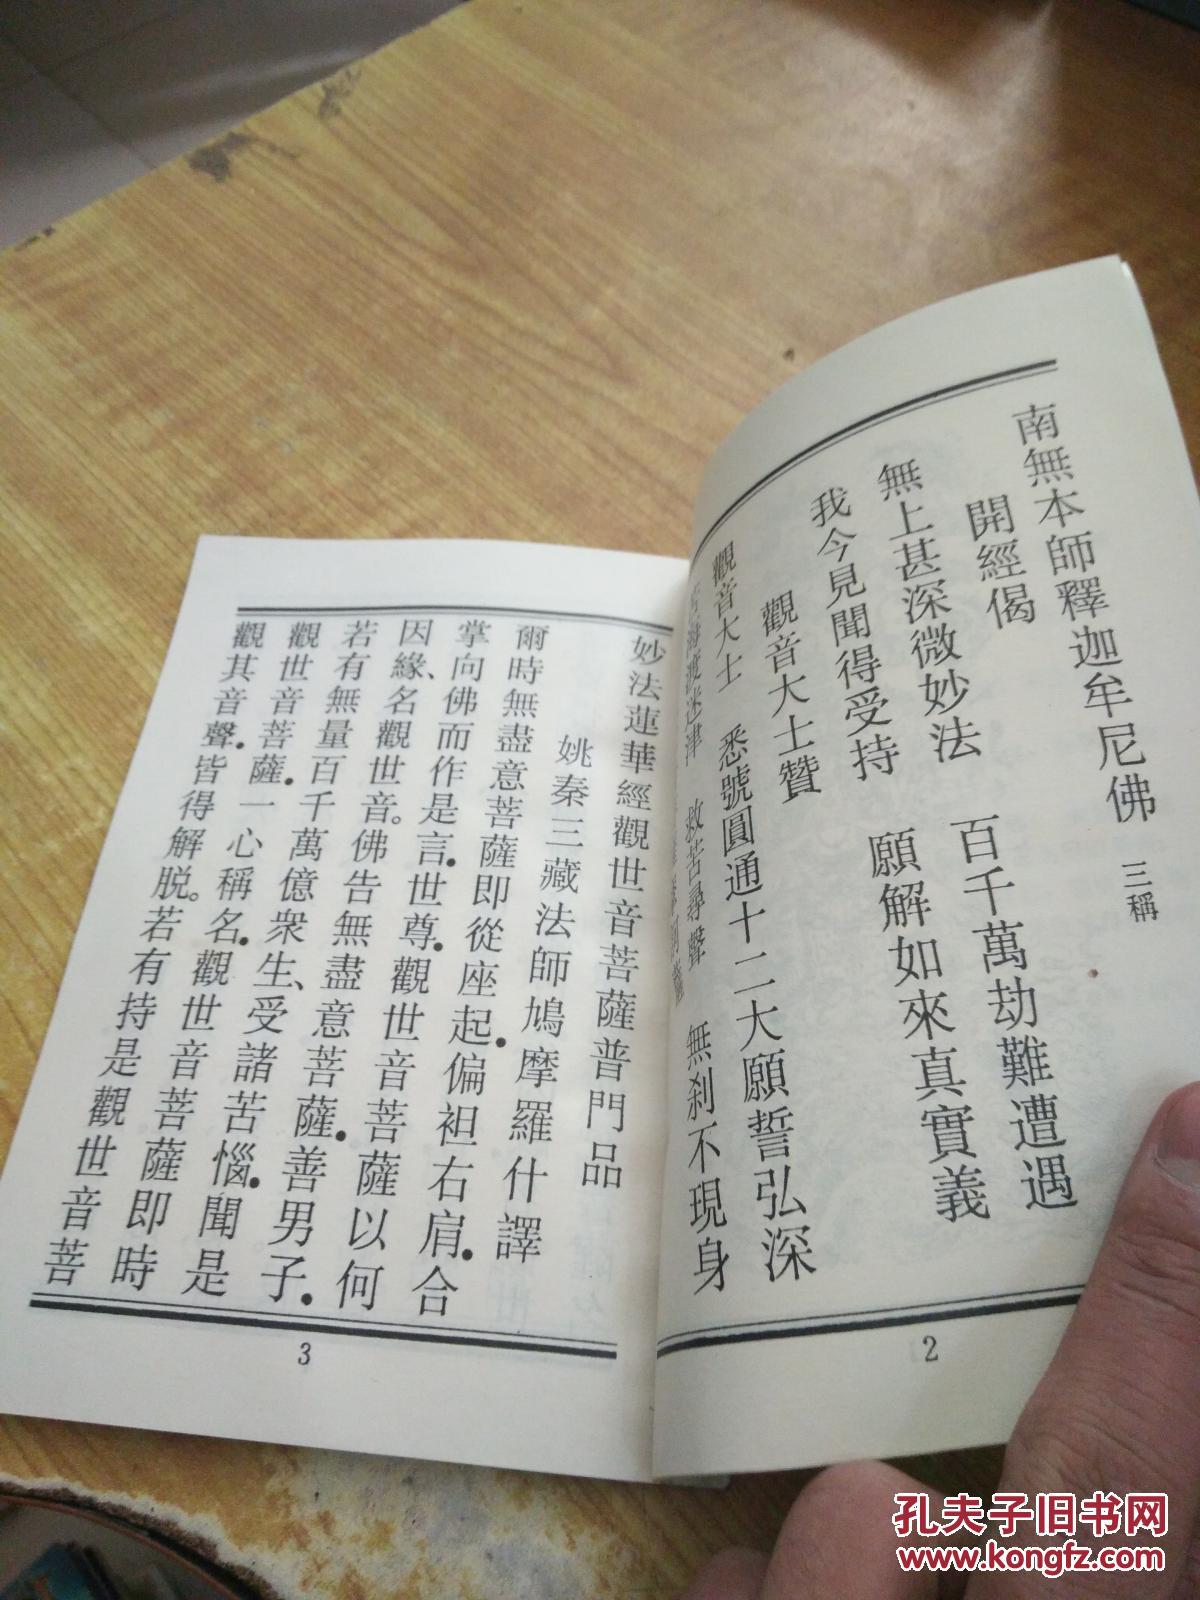 南無本師釋迦牟尼佛 三稱
開經偈
無上甚深微妙法 百千萬劫難遭遇
我今見聞得受持 願解如來真實義
觀音大士贊
觀音大士 悉號圓通十二大願誓弘深
苦海渡迷津 救苦尋聲 無刹不現身
2
妙法蓮華經觀世音菩薩普門品
姚秦三藏法師鳩摩羅什譯
爾時無盡意菩薩即從座起.偏袒右肩.合
掌向佛而作是言.世尊.觀世音菩薩以何
因緣、名觀世音。佛告無盡意菩薩.善男子.
若有無量百千萬億衆生、受諸苦惱.聞是
觀世音菩薩.一心稱名.觀世音菩薩即時
觀其音聲.皆得解脱。若有持是觀世音菩
3
孔夫子旧书网
www.kongfz.com